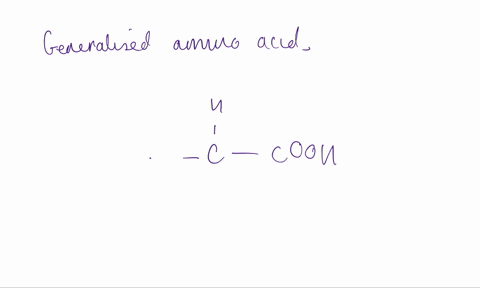 Generalised amino acid.
H
- C - COOH